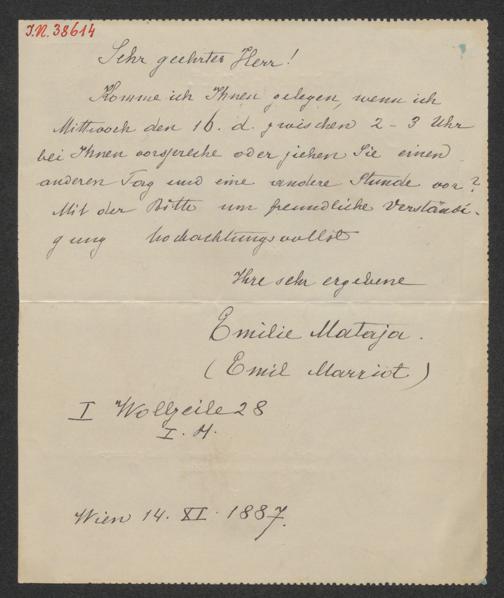 I.N. 38614
Sehr geehrter Herr!
Komme ich Ihnen gelegen, wenn ich
Mittwoch den 16. d. zwischen 2 - 3 Uhr
bei Ihnen vorspreche oder ziehen Sie einen
anderen Tag und eine andere Stunde vor?
Mit der Bitte um freundliche Verständi-
gung hochachtungsvollst
Ihre sehr ergebene
Emilie Mataja.
(Emil Marriot)
I Wollzeile 28
I. H.
Wien 14. XI. 1887.